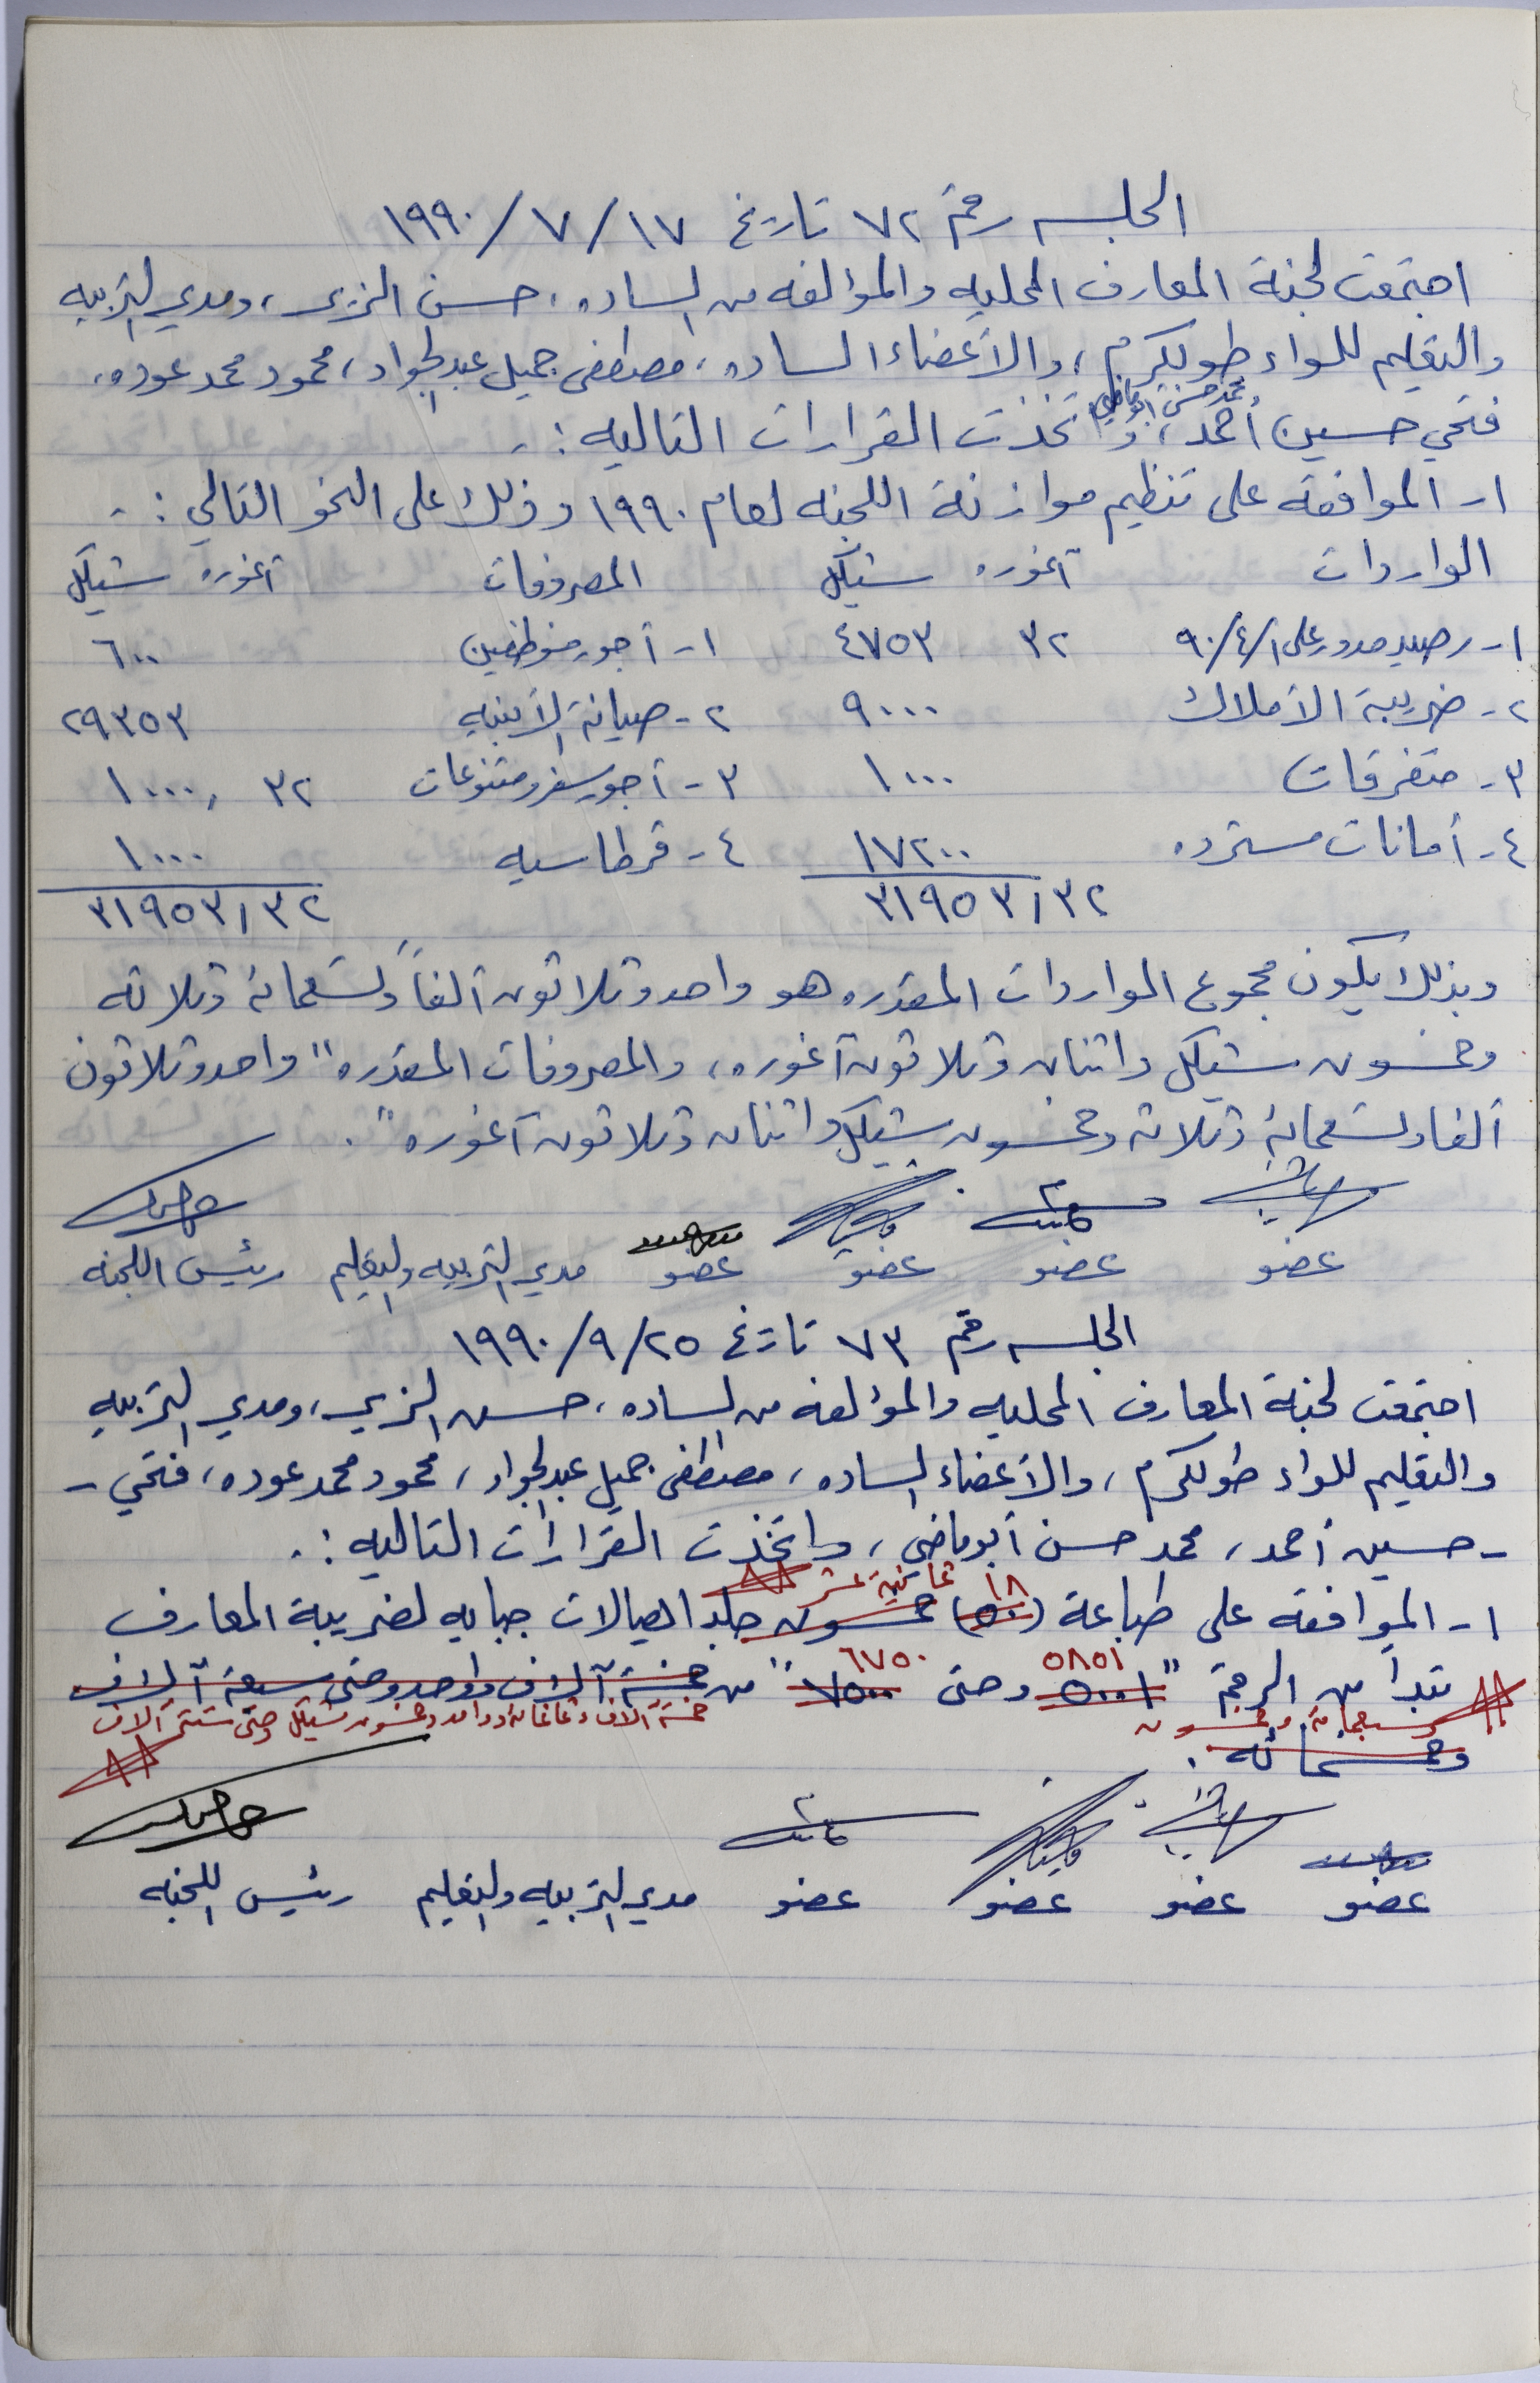 الجلسه رقم ٧٢ تاريخ ١٧/٧/١٩٩٠
اجتمعت لجنة المعارف المحليه والمؤلفه من الساده، حسن الزير، ومدير التربيه
والتعليم للواء طولكرم، والأعضاء الساده، مصطفى جميل عبدالجواد، محمود محمد عوده،
محمد حسن ابوماضي
فتحي حسين أحمد، واتخذت القرارات التاليه :-
١- الموافقه على تنظيم موازنة اللجنه لعام ١٩٩٠ وذلك على النحو التالي :-
الواردات آغوره شيكل المصروفات آغوره شيكل
١- رصيد مدور على ٩٠/٤/١ ٣٢ ٤٧٥٣ ١- أجور موظفين ٦٠٠
٢- ضريبة الأملاك ٩٠٠٠ ٢- صيانة الأبنيه ٢٩٣٥٣
٣- متفرقات ١٠٠٠ ٣- أجور سفر ومتنوعات ٣٢ ١٠٠٠
٤- أمانات مسترده ١٧٢٠٠ ٤- قرطاسيه ١٠٠٠
٣١٩٥٣,٣٢ ٣١٩٥٣,٣٢
وبذلك يكون مجموع الواردات المقدره هو واحد وثلاثون ألفاً وتسعمائة وثلاثه
وخمسون شيكل واثنان وثلاثون آغوره، والمصروفات المقدره "واحد وثلاثون
ألفا وتسعمائة وثلاثة وخمسون شيكل واثنان وثلاثون آغوره".
عضو عضو عضو عضو مدير التربيه والتعليم رئيس اللجنه
الجلسه رقم ٧٣ تاريخ ٢٥/٩/١٩٩٠
اجتمعت لجنة المعارف المحليه والمؤلفه من الساده، حسن الزير، ومدير التربيه
والتعليم للواء طولكرم، والأعضاء الساده، مصطفى جميل عبدالجواد، محمود محمد عوده، فتحي -
- حسين أحمد، محمد حسن أبوماضي، واتخذت القرارات التاليه :-
١٨ ثمانية عشر
١- الموافقه على طباعة (٥٠) خمسون جلد ايصالات جبايه لضريبة المعارف
٥٨٥١ ٦٧٥٠
تبدأ من الرقم "٥٠٠١ وحتى ٧٥٠٠" من خمسة آلاف وواحد وحتى سبعة آلاف
خمسة آلاف وثمانمائة وواحد وخمسون شيكل وحتى ستة آلاف
وسبعمائة وخمسون
وخمسمائه.
عضو عضو عضو عضو مدير التربيه والتعليم رئيس اللجنه